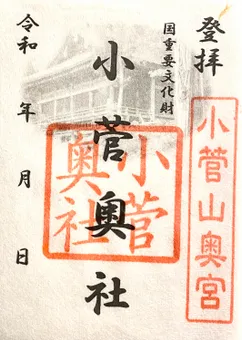 登拝
国重要文化財
小菅山奥宮
小菅奥社
小菅
奥社
令和 年 月 日